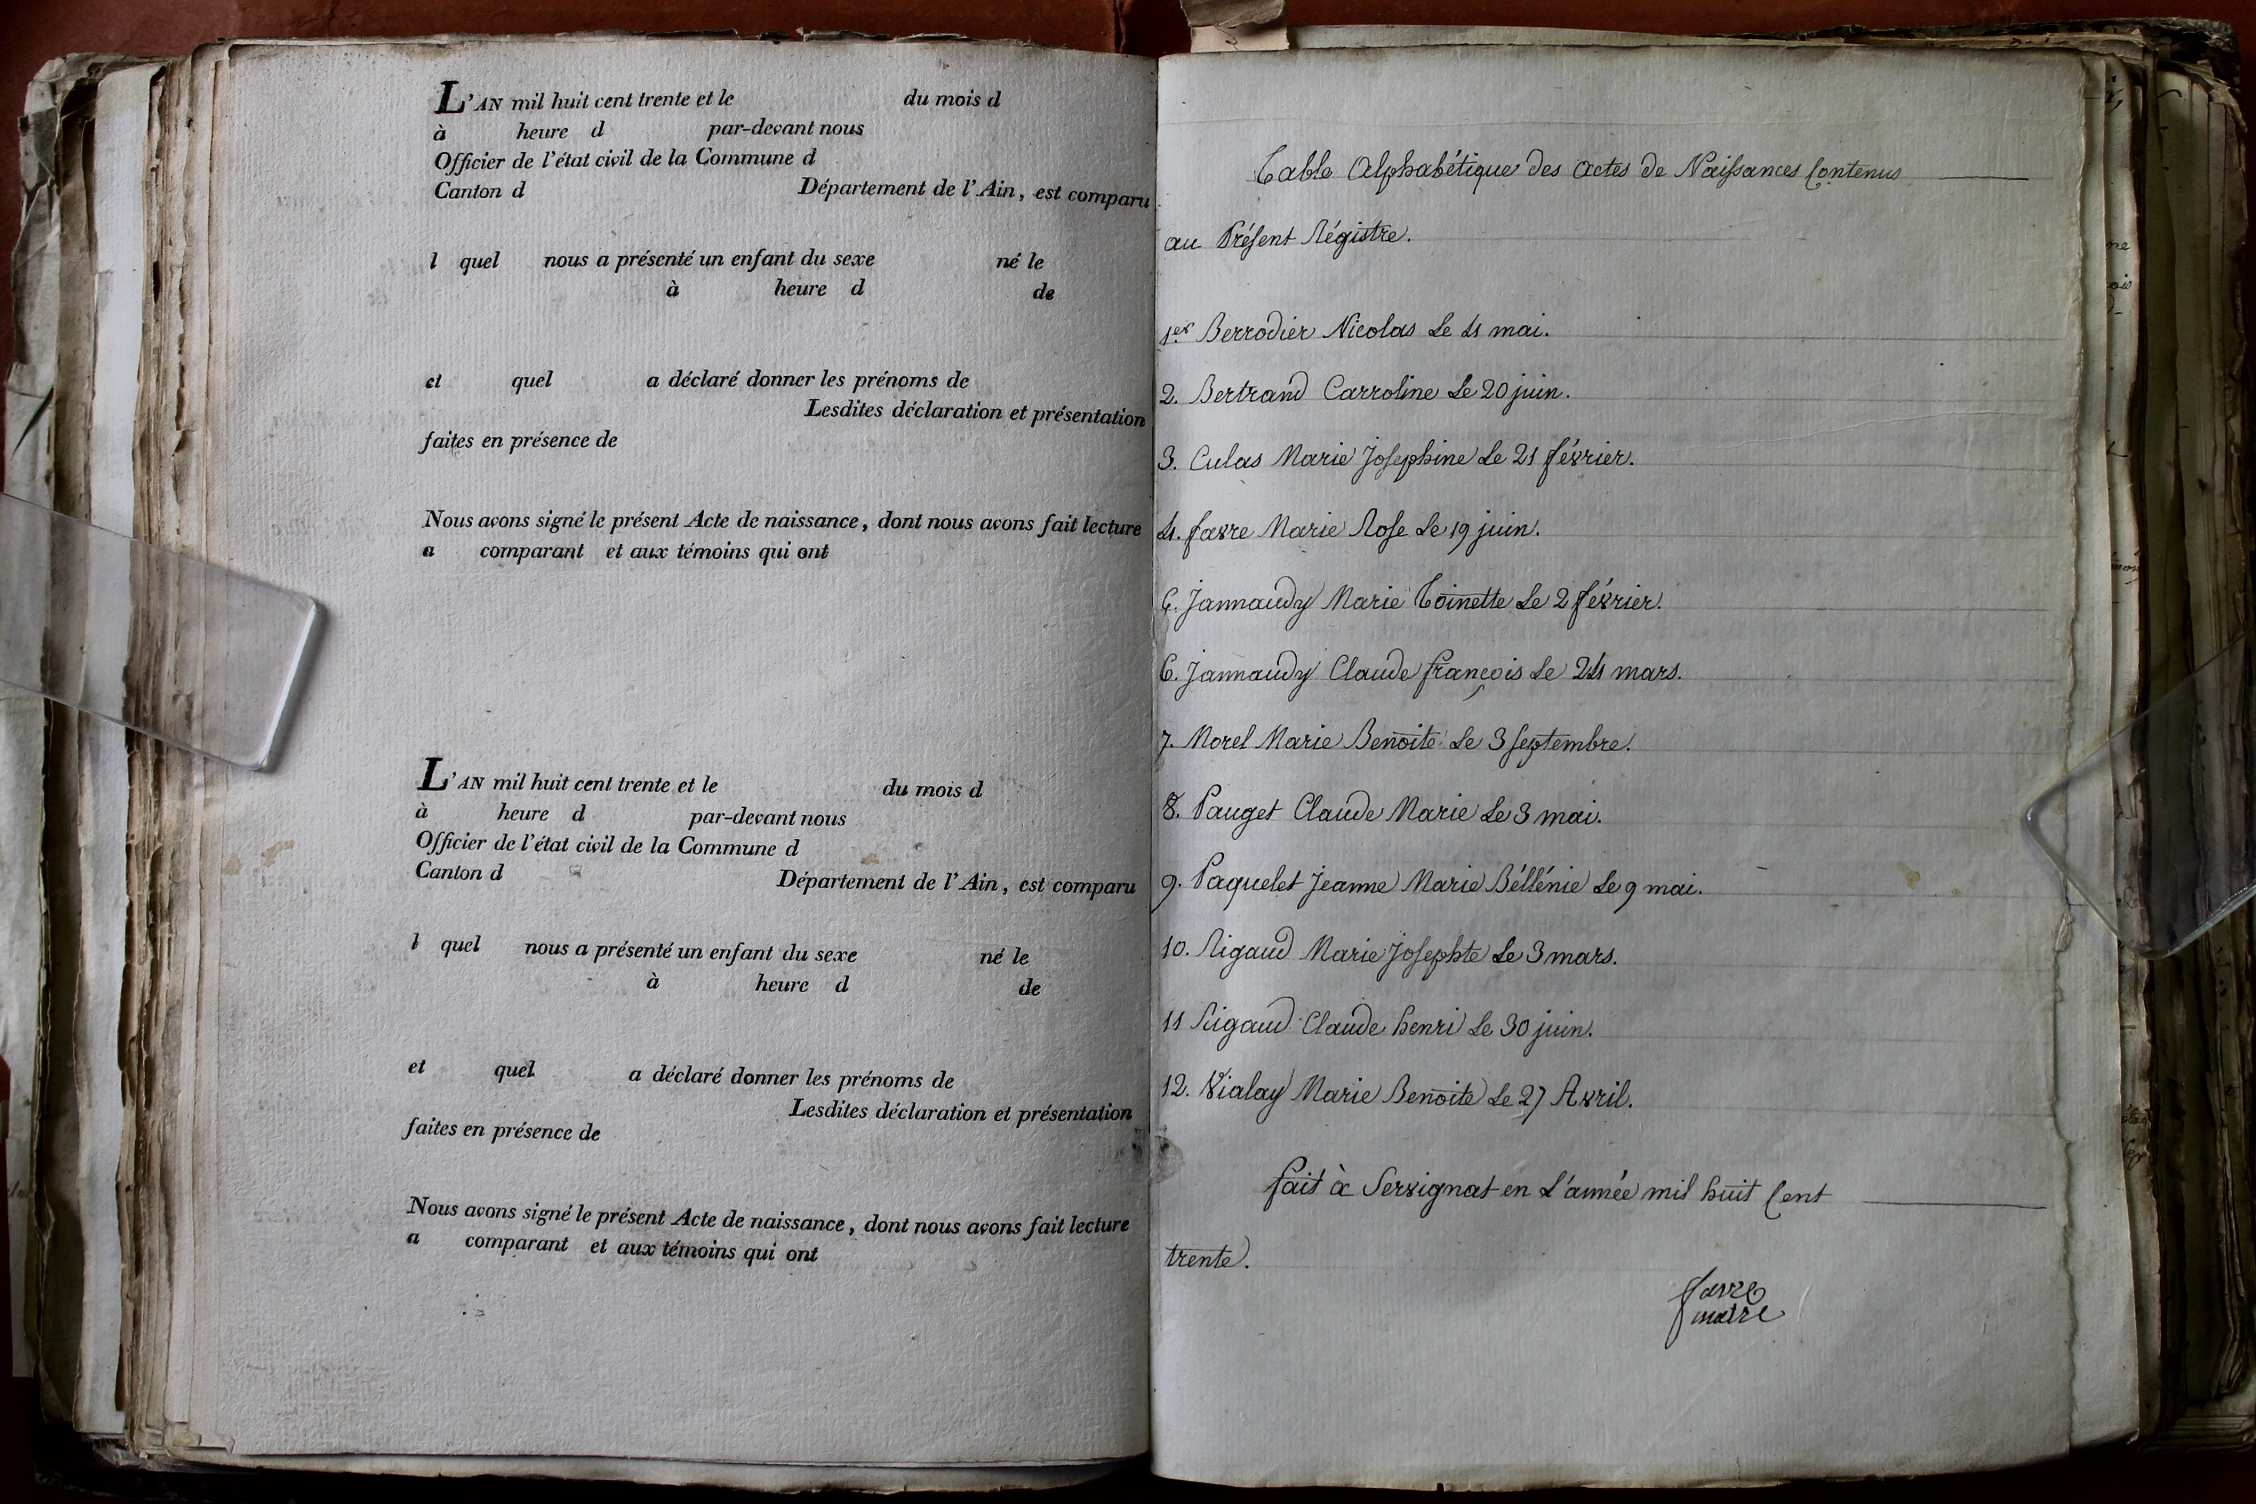 L'AN mil huit cent trente et le du mois d
à heure d par-devant nous
Officier de l'état civil de la Commune d
Canton d Département de l'Ain, est comparu
l quel nous a présenté un enfant du sexe né le
à heure d de
et quel a déclaré donner les prénoms de
Lesdites déclaration et présentation
faites en présence de
Nous avons signé le présent Acte de naissance, dont nous avons fait lecture
a comparant et aux témoins qui ont
L'AN mil huit cent trente et le du mois d
à heure d par-devant nous
Officier de l'état civil de la Commune d
Canton d Département de l'Ain, est comparu
l quel nous a présenté un enfant du sexe né le
à heure d de
et quel a déclaré donner les prénoms de
Lesdites déclaration et présentation
faites en présence de
Nous avons signé le présent Acte de naissance, dont nous avons fait lecture
a comparant et aux témoins qui ont
Table Alphabétique des actes de Naissances Contenus
au Présent Régistre.
1er Berrodier Nicolas Le 4 mai.
2. Bertrand Carroline Le 20 juin.
3. Culas Marie Josephine Le 21 février.
4. favre Marie Rose Le 19 juin.
5. Jannaudy Marie Toinette Le 2 février.
6. Jannaudy Claude françois Le 24 mars.
7. Morel Marie Benoite Le 3 septembre.
8. Pauget Claude Marie Le 3 mai.
9. Paquelet Jeanne Marie Béllénie Le 9 mai.
10. Rigaud Marie Josephte Le 3 mars.
11 Rigaud Claude henri Le 30 juin.
12. Vialay Marie Benoite Le 27 Avril.
fait à Servignat en L'année mil huit Cent
trente.
favre
maire